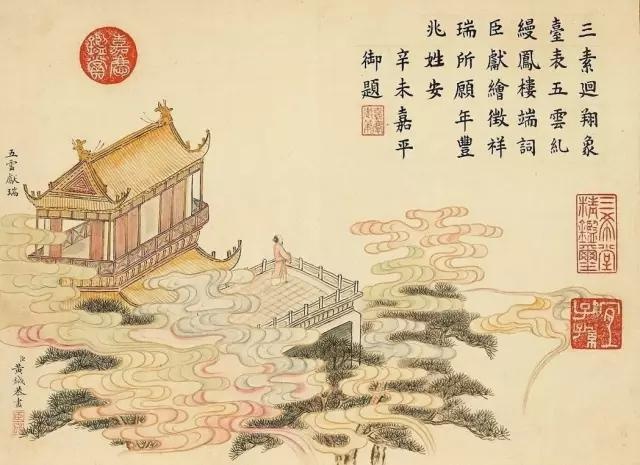 三素迴翔象
臺表五雲糺
縵鳳樓端詞
臣獻繪徵祥
瑞所願年豐
兆姓安
辛未嘉平
御題
三希堂
精鑑璽
宜子孫
嘉慶
鑑賞
五雲獻瑞
臣黃鉞恭畫